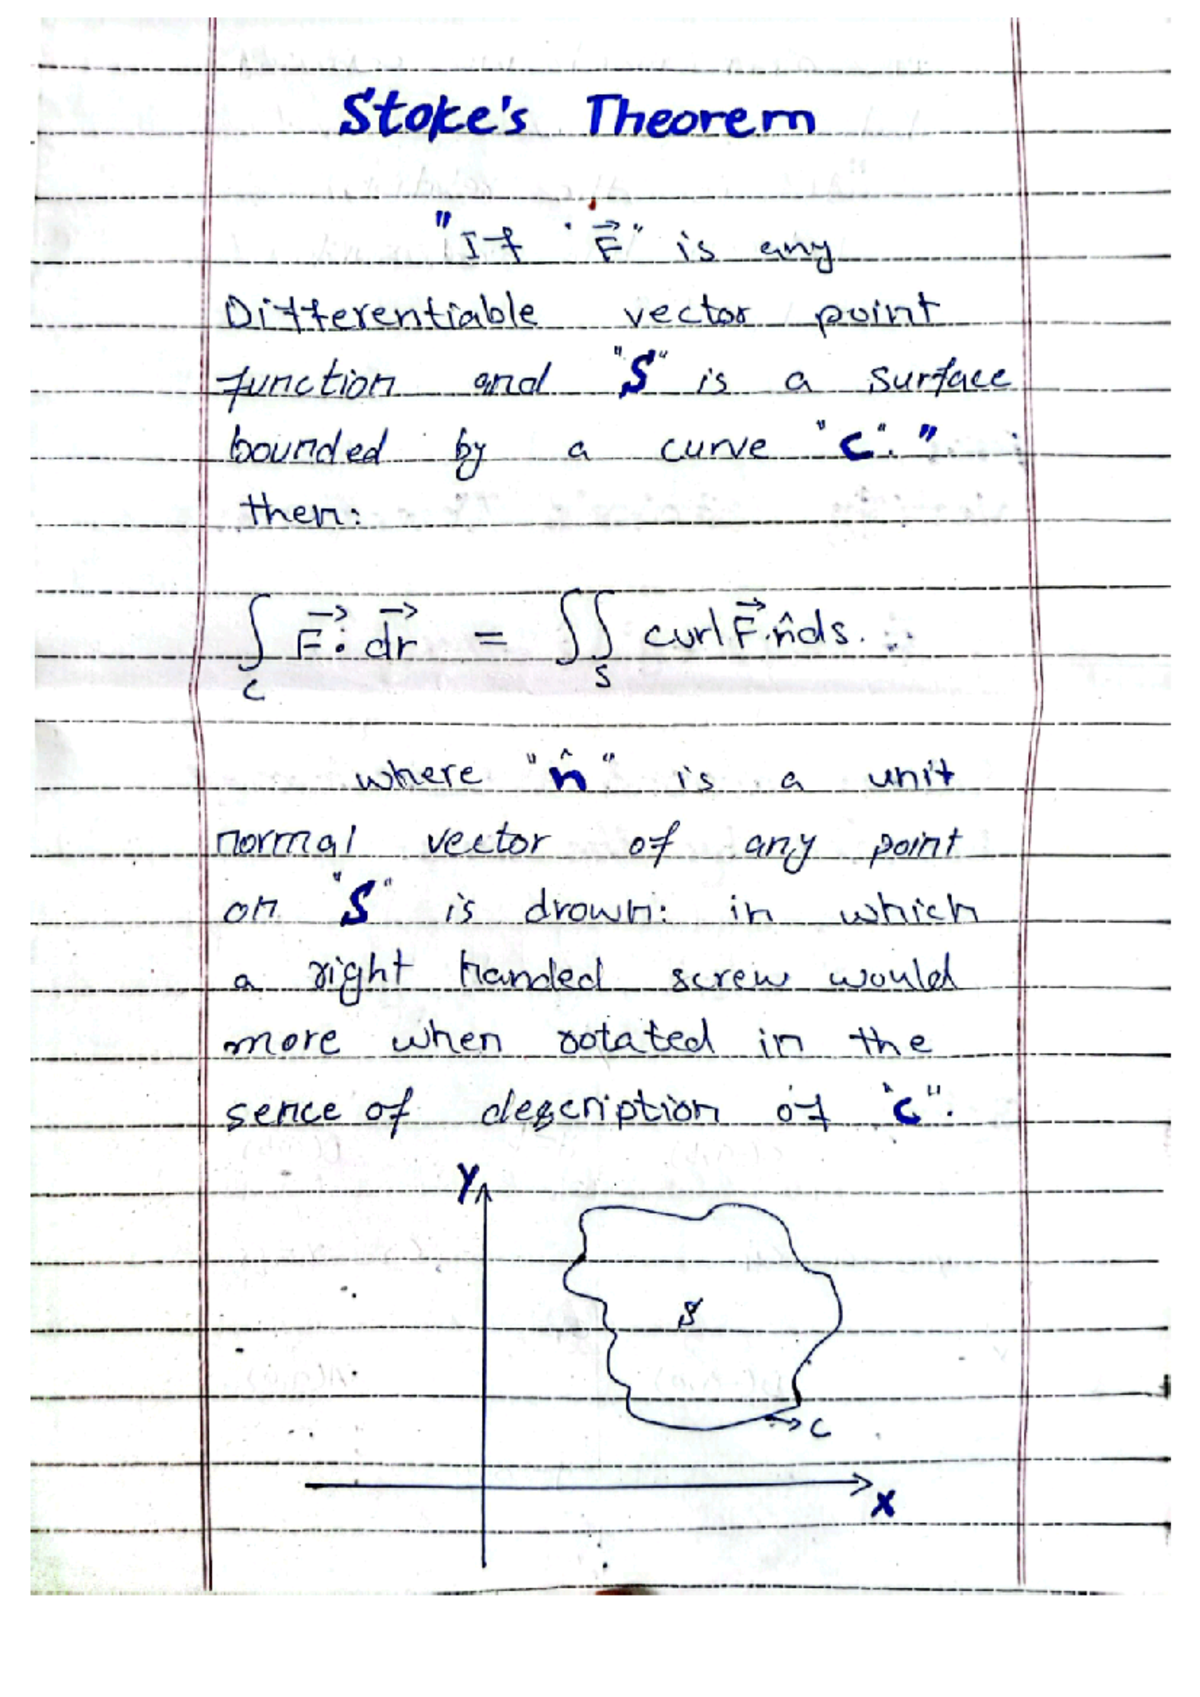 Stoke's Theorem
"If "F⃗" is any
Differentiable vector point
function and "S" is a surface
bounded by a curve "C"."
then:
∫_C F⃗. dr⃗ = ∬_S curl F⃗.n̂ds.
where "n̂" is a unit
normal vector of any point
on "S" is drown: in which
a right handed screw would
more when rotated in the
sence of description of "C".
Y
S
→C
X